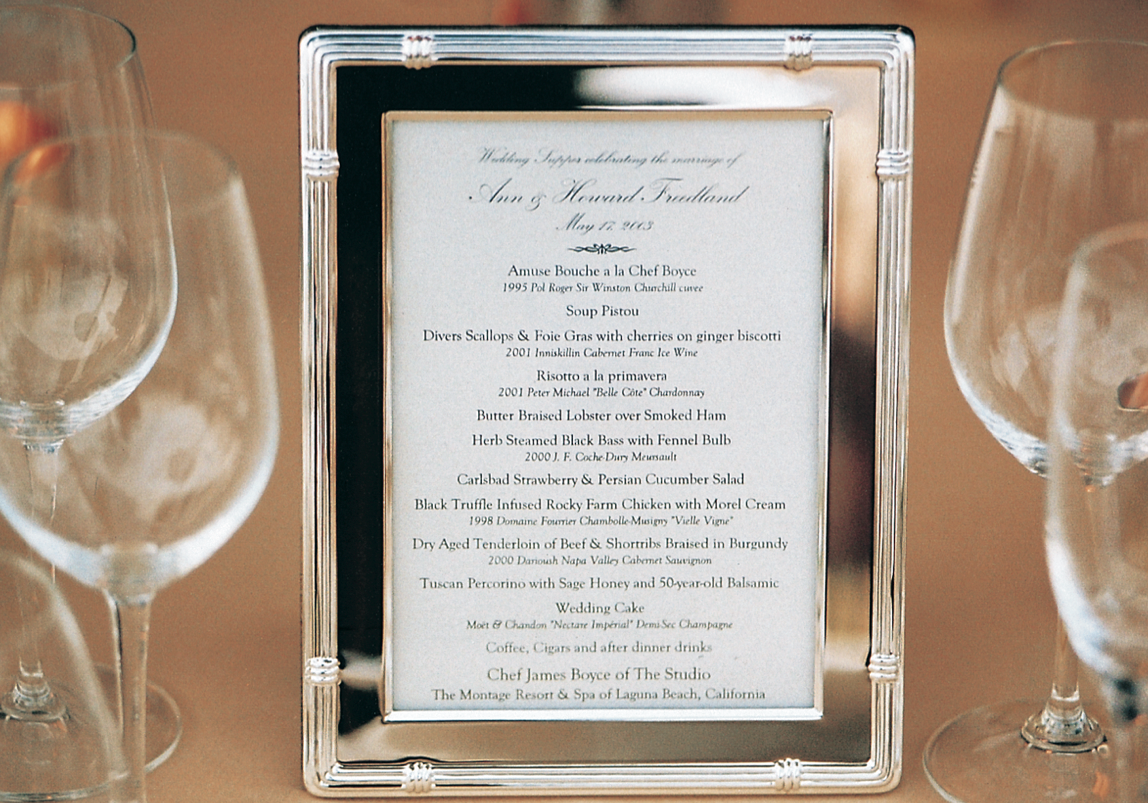 Wedding Supper celebrating the marriage of
Ann & Howard Freedland
May 17, 2003
Amuse Bouche a la Chef Boyce
1995 Pol Roger Sir Winston Churchill cuvee
Soup Pistou
Divers Scallops & Foie Gras with cherries on ginger biscotti
2001 Inniskillin Cabernet Franc Ice Wine
Risotto a la primavera
2001 Peter Michael "Belle Côte" Chardonnay
Butter Braised Lobster over Smoked Ham
Herb Steamed Black Bass with Fennel Bulb
2000 J. F. Coche-Dury Meursault
Carlsbad Strawberry & Persian Cucumber Salad
Black Truffle Infused Rocky Farm Chicken with Morel Cream
1998 Domaine Fourrier Chambolle-Musigny "Vielle Vigne"
Dry Aged Tenderloin of Beef & Shortribs Braised in Burgundy
2000 Darioush Napa Valley Cabernet Sauvignon
Tuscan Percorino with Sage Honey and 50-year-old Balsamic
Wedding Cake
Moët & Chandon "Nectare Impérial" Demi-Sec Champagne
Coffee, Cigars and after dinner drinks
Chef James Boyce of The Studio
The Montage Resort & Spa of Laguna Beach, California